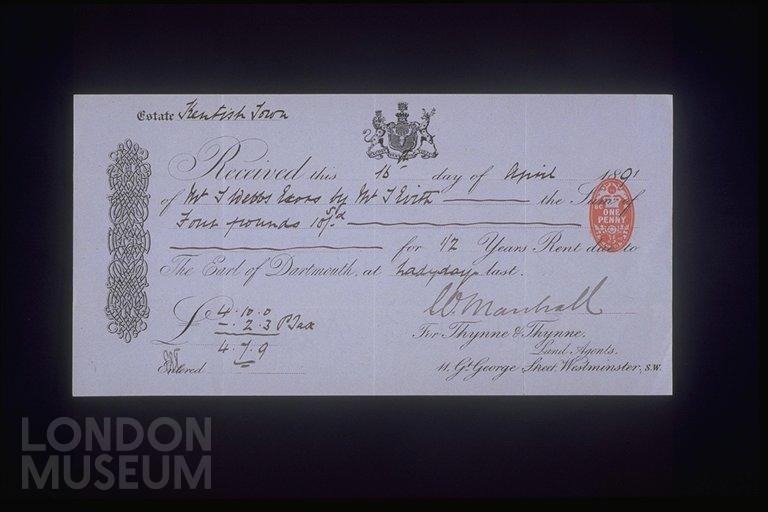 Estate Kentish Town
Received this 16 day of April 1891
of Mr T Webbs Exors by Mr T the Sum of
Four pounds 10/-
for 1/2 Years Rent due to
The Earl of Dartmouth, at Ladyday last.
£ 4.10.0
-.2.3 P Tax
4.7.9
Entered
W. Marshall
For Thynne & Thynne.
Land Agents.
11, Gt. George Street, Westminster, S.W.
ONE PENNY
LONDON
MUSEUM